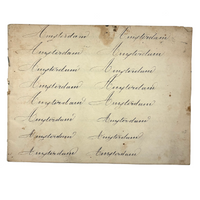 Amsterdam Amsterdam
Amsterdam Amsterdam
Amsterdam Amsterdam
Amsterdam Amsterdam
Amsterdam Amsterdam
Amsterdam Amsterdam
Amsterdam Amsterdam
Amsterdam Amsterdam